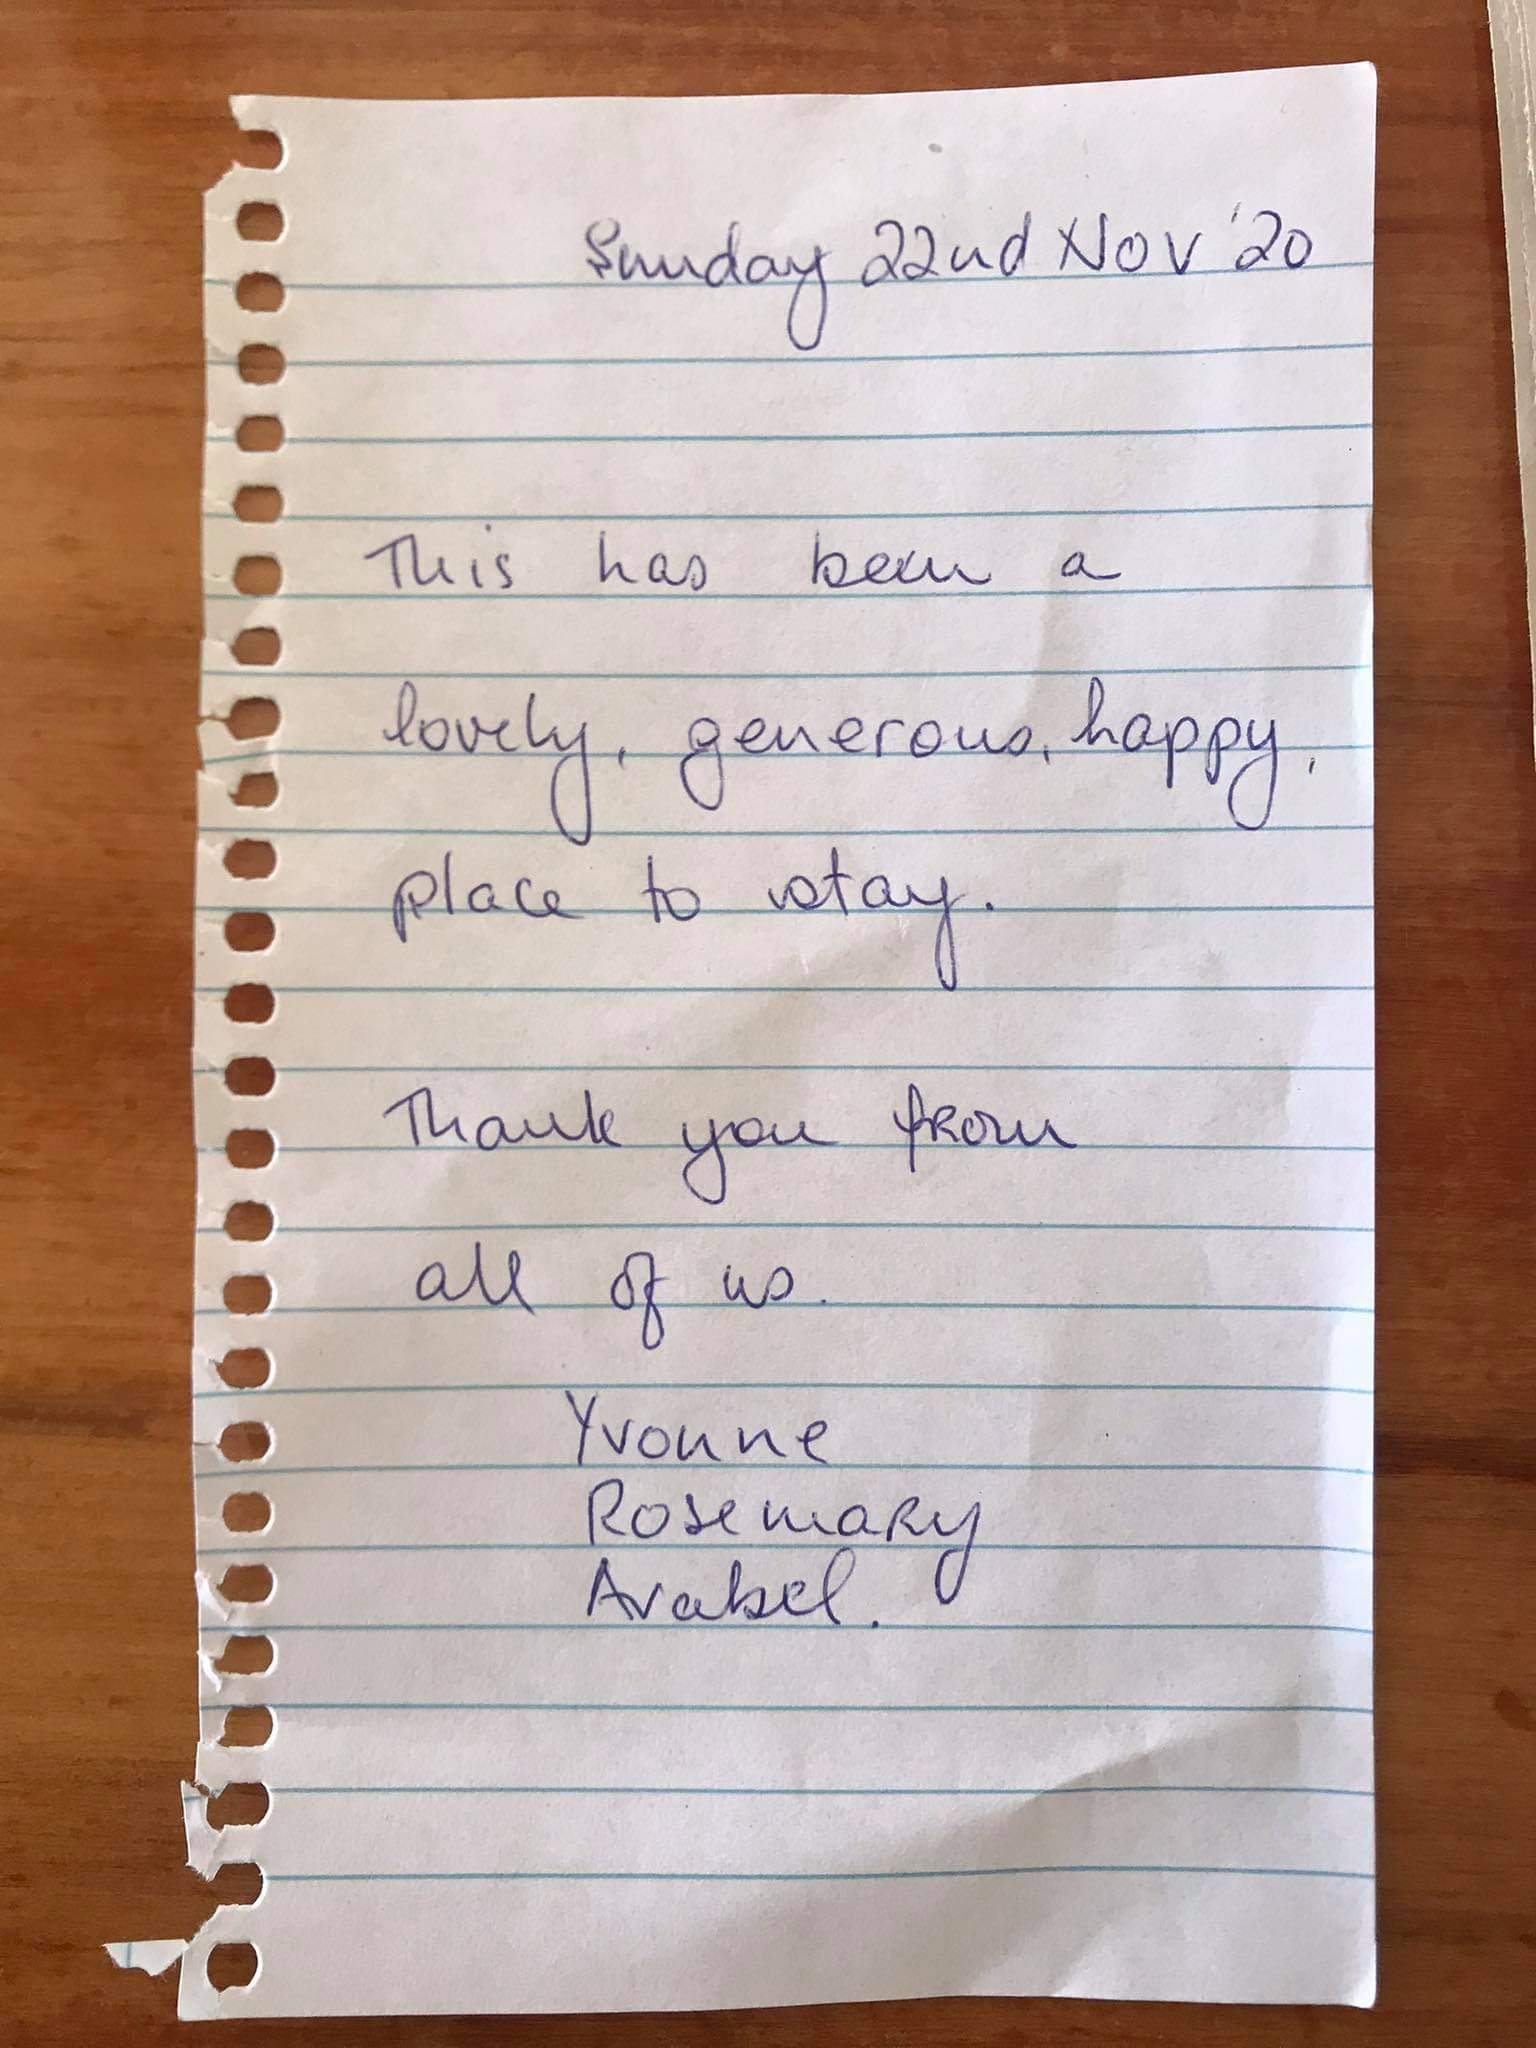 Sunday 22nd Nov '20
This has been a
lovely, generous, happy,
place to stay.
Thank you from
all of us.
Yvonne
Rosemary
Arabel.